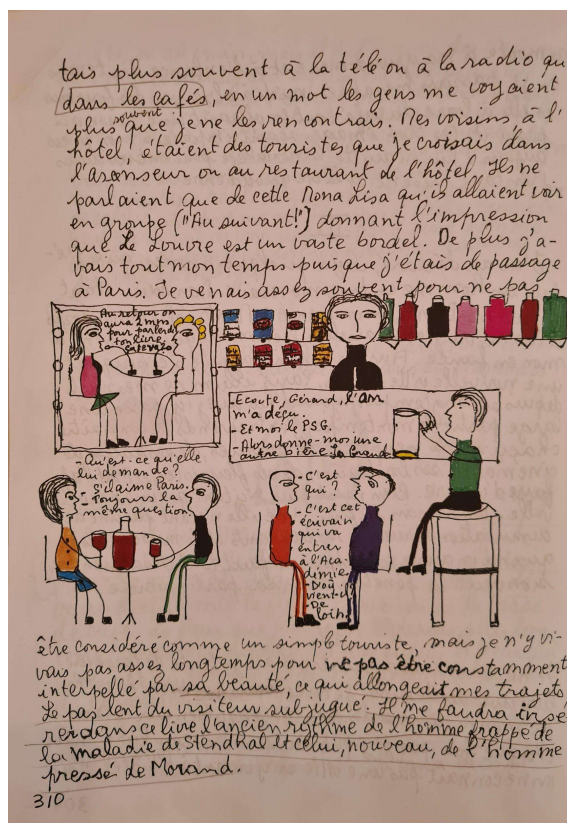 tais plus souvent à la télé ou à la radio qu
dans les cafés, en un mot les gens me voyaient
plus souvent que je ne les rencontrais. Mes voisins, à l'
hôtel, étaient des touristes que je croisais dans
l'ascenseur ou au restaurant de l'hôtel. Ils ne
parlaient que de cette Mona Lisa qu'ils allaient voir
en groupe ("Au suivant!") donnant l'impression
que Le Louvre est un vaste bordel. De plus j'a-
vais tout mon temps puisque j'étais de passage
à Paris. Je venais assez souvent pour ne pas
Au retour on
aura 2 mm
pour parler de
ton livre
- Ecoute, Gérard, l'OM
m'a déçu.
- Et moi le PSG.
- Alors donne-moi une
autre bière. La Grande
- Qu'est-ce qu'elle
lui demande?
- S'il aime Paris.
- Toujours la
même question
- C'est
qui?
- C'est cet
écrivain
qui va
entrer
à l'Aca-
démie
- D'où
vient-il?
- De
loin.
être considéré comme un simple touriste, mais je n'y vi-
vais pas assez longtemps pour ne pas être constamment
interpellé par sa beauté, ce qui allongeait mes trajets.
Le pas lent du visiteur subjugué. Il me faudra insé
rer dans ce livre l'ancien rythme de l'homme frappé de
la maladie de Stendhal et celui, nouveau, de l'homme
pressé de Morand.
310